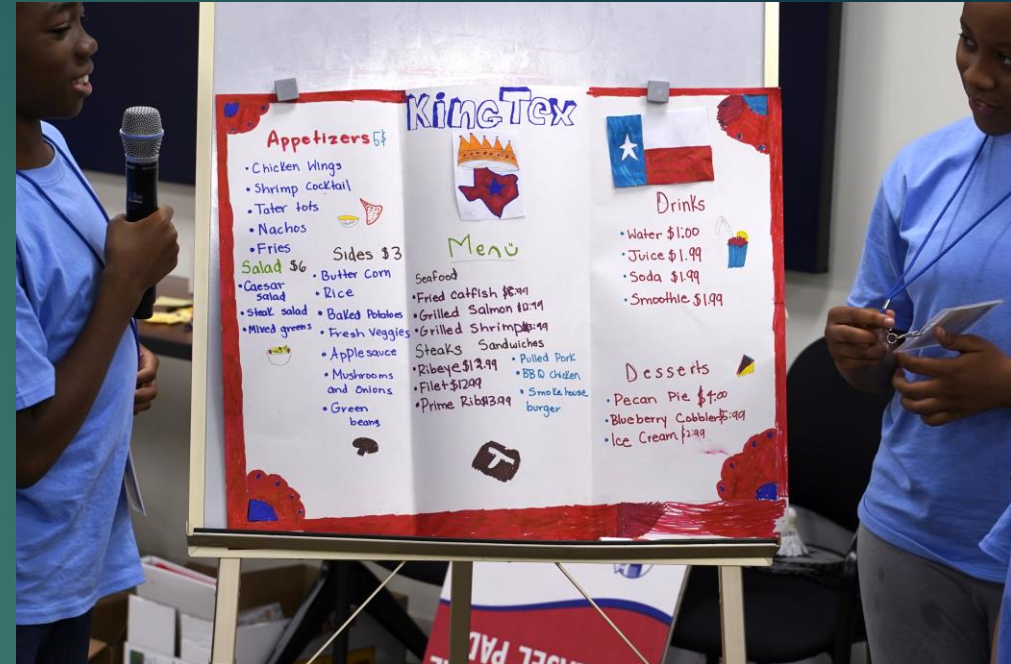 King Tex
Appetizers 5$
• Chicken Wings
• Shrimp Cocktail
• Tater tots
• Nachos
• Fries
Salad $6
• Caesar
salad
• Steak salad
• Mixed greens
Sides $3
• Butter Corn
• Rice
• Baked Potatoes
• Fresh Veggies
• Apple sauce
• Mushrooms
and Onions
• Green
beans
Menu
Seafood
• Fried Catfish
• Grilled Salmon 10.99
• Grilled Shrimp
Steaks
• Ribeye $12.99
• Filet $12.99
• Prime Rib $13.99
Sandwiches
• Pulled Pork
• BBQ Chicken
• Smokehouse
burger
T
Drinks
• Water $1.00
• Juice $1.99
• Soda $1.99
• Smoothie $1.99
Desserts
• Pecan Pie $4.00
• Blueberry Cobbler $5.99
• Ice Cream $2.99
EASEL PAD